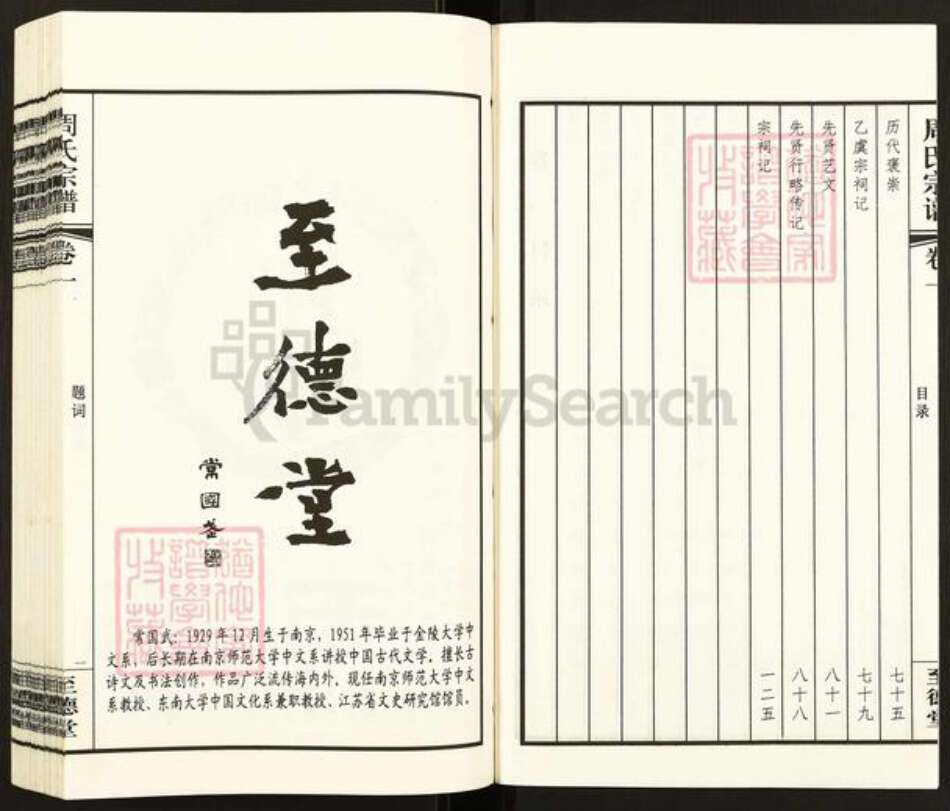 周氏宗谱
卷一
目录
至德堂
历代褒崇 七十五
乙虞宗祠记 七十九
先贤艺文 八十一
先贤行略传记 八十八
宗祠记 一二五
至德堂
常國武
常国武：1929年12月生于南京，1951年毕业于金陵大学中
文系，后长期在南京师范大学中文系讲授中国古代文学。擅长古
诗文及书法创作，作品广泛流传海内外。现任南京师范大学中文
系教授、东南大学中国文化系兼职教授、江苏省文史研究馆馆员。
周氏宗谱
卷一
题词
一
至德堂
FamilySearch